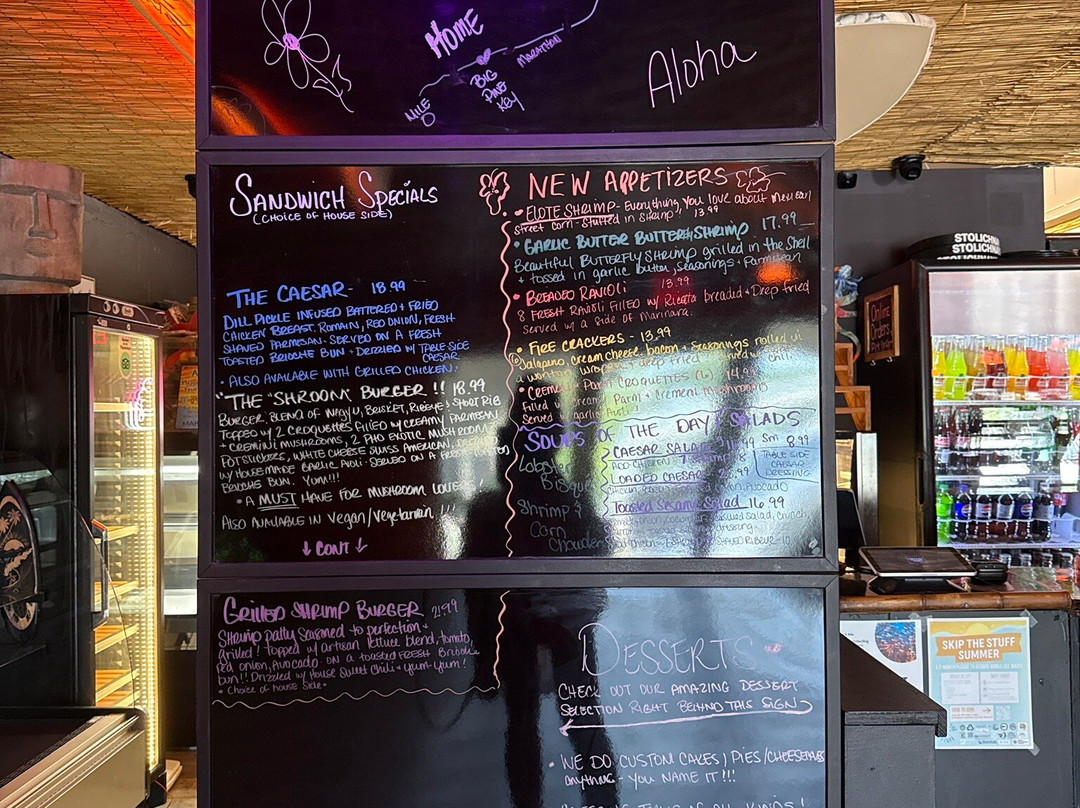 HOME
MARATHON
BIG
PINE
KEY
MILE
0
Aloha
SANDWICH SPECIALS
(CHOICE OF HOUSE SIDE)
THE CAESAR - 18.99
DILL PICKLE INFUSED BATTERED + FRIED
CHICKEN BREAST. ROMAIN, RED ONION, FRESH
SHAVED PARMESAN. SERVED ON A FRESH
TOASTED BRIOCHE BUN + DRIZZLED W/ TABLE SIDE
CAESAR
• ALSO AVAILABLE WITH GRILLED CHICKEN.
"THE "SHROOM" BURGER !! 18.99
BURGER BLEND OF WAGYU, BRISKET, RIBEYE + SHORT RIB
TOPPED W/ 2 CROQUETTES FILLED W/ CREAMY PARMESAN
+ CREMINI MUSHROOMS, 2 PHO EXOTIC MUSHROOM
POTSTICKERS, WHITE CHEESE SWISS AMERICAN,
W/ HOUSEMADE GARLIC AIOLI - SERVED ON A FRESH TOASTED
BRIOCHE BUN. YUM!!!
• A MUST HAVE FOR MUSHROOM LOVERS!
ALSO AVAILABLE IN VEGAN/VEGETARIAN !!!
↓ CONT ↓
NEW APPETIZERS
• ELOTE SHRIMP - Everything you love about Mexican
street corn - stuffed in shrimp! 13.99
• GARLIC BUTTER BUTTERFLY SHRIMP 17.99
Beautiful Butterfly Shrimp grilled in the shell
+ tossed in garlic butter, seasonings + Parmesan
• BREADED RAVIOLI 13.99
8 FRESH RAVIOLI FILLED W/ Ricotta breaded + Deep fried
Served w/ a side of Marinara.
• FIRE CRACKERS - 13.99
Jalapeno, cream cheese, bacon + seasonings rolled in
a wonton wrapper + deep fried served w/ chili.
• PARM CROQUETTES (6) 14.99
Filled w/ creamy Parm + cremini mushrooms
Served w/ garlic Aioli
SOUPS OF THE DAY
Lobster
Bisque
Shrimp &
Corn
Chowder
SALADS
CAESAR SALAD
Sm 8.99
TABLE SIDE
CAESAR
DRESSING
LOADED CAESAR
Avocado
Toasted Sesame Salad 16.99
GRILLED SHRIMP BURGER 21.99
Shrimp patty seasoned to perfection +
grilled! topped w/ artisan lettuce blend, tomato,
red onion, Avocado on a toasted FRESH Brioche
bun!! Drizzled w/ House Sweet Chili + yum-yum!
• Choice of house side •
DESSERTS
CHECK OUT OUR AMAZING DESSERT
SELECTION RIGHT BEHIND THIS SIGN
• WE DO CUSTOM CAKES / PIES / CHEESECAKES
anything - YOU NAME IT!!!
Online
Orders
STOLICHNA
STOLICHNA
SKIP THE STUFF
SUMMER